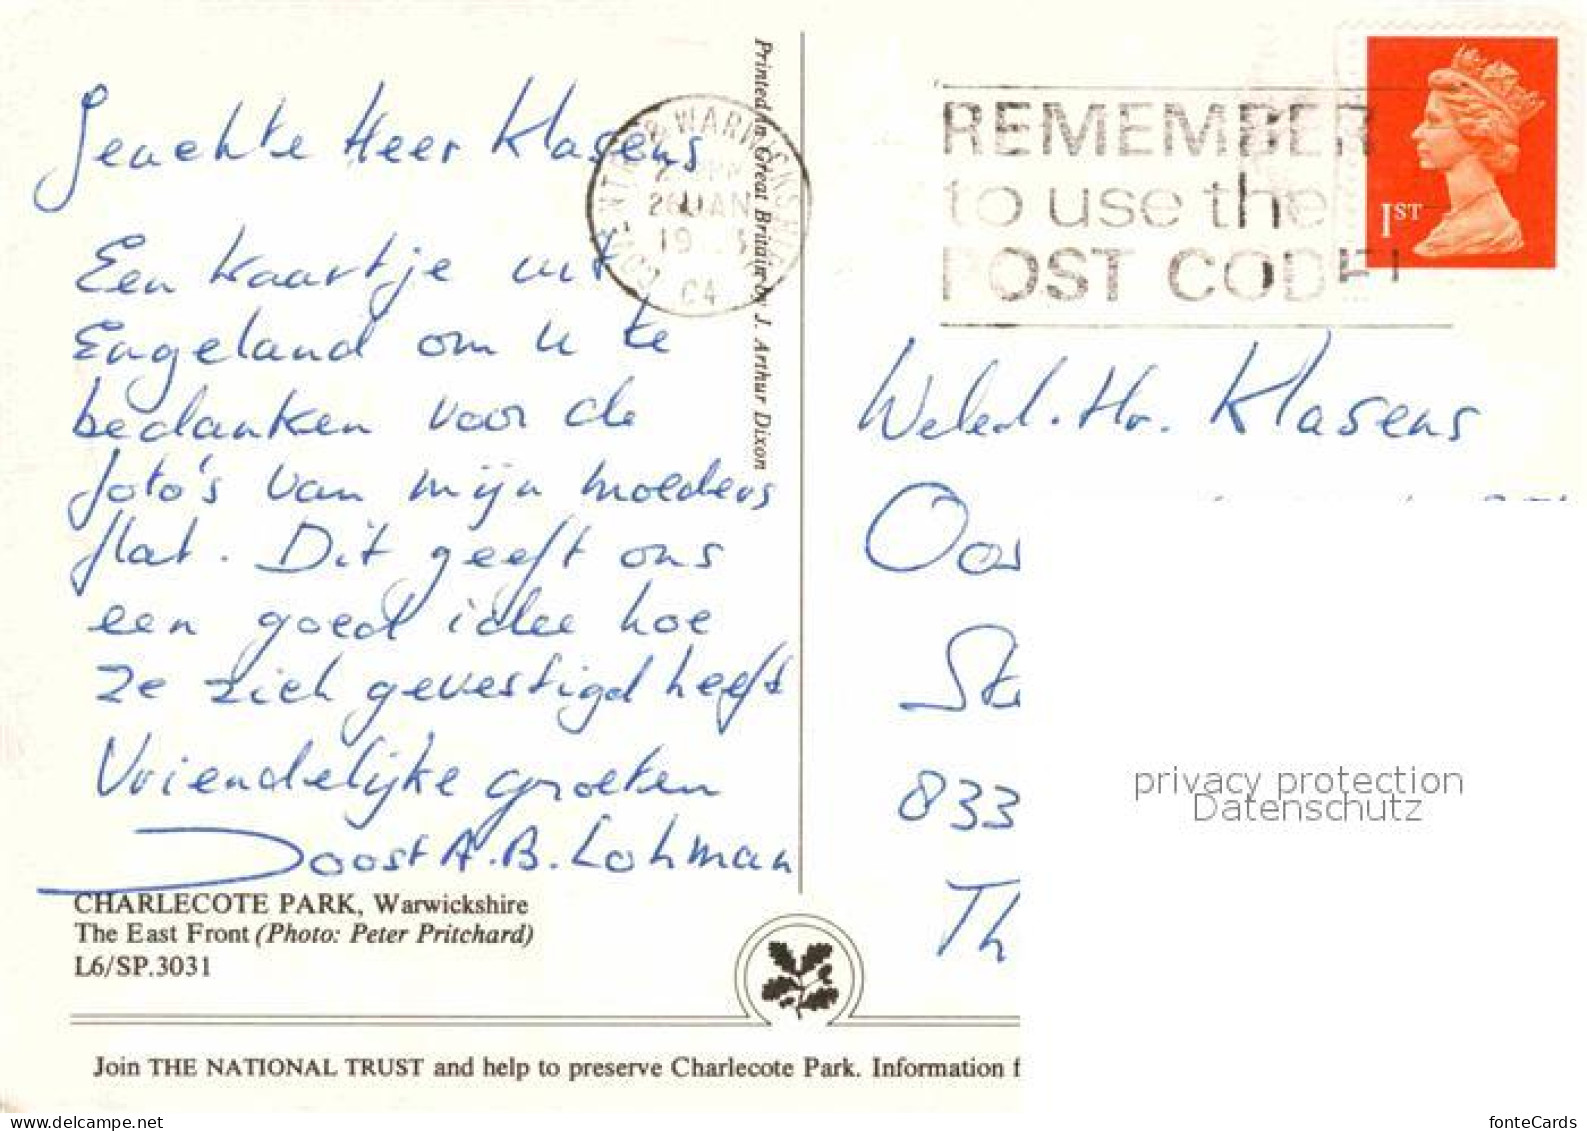 Geachte Heer Klasens
Een kaartje uit
Engeland om u te
bedanken voor de
foto's van mijn moeders
flat. Dit geeft ons
een goed idee hoe
ze zich gevestigd heeft
Vriendelijke groeten
Joost A.B. Lohman
CHARLECOTE PARK, Warwickshire
The East Front (Photo: Peter Pritchard)
L6/SP.3031
Join THE NATIONAL TRUST and help to preserve Charlecote Park. Information f
Printed in Great Britain by J. Arthur Dixon
COVENTRY & WARWICKSHIRE
JAN
C4
REMEMBER
to use the
POST CODE!
1ST
Weled. Hr. Klasens
833
Th
privacy protection
Datenschutz
delcampe.net
fonteCards